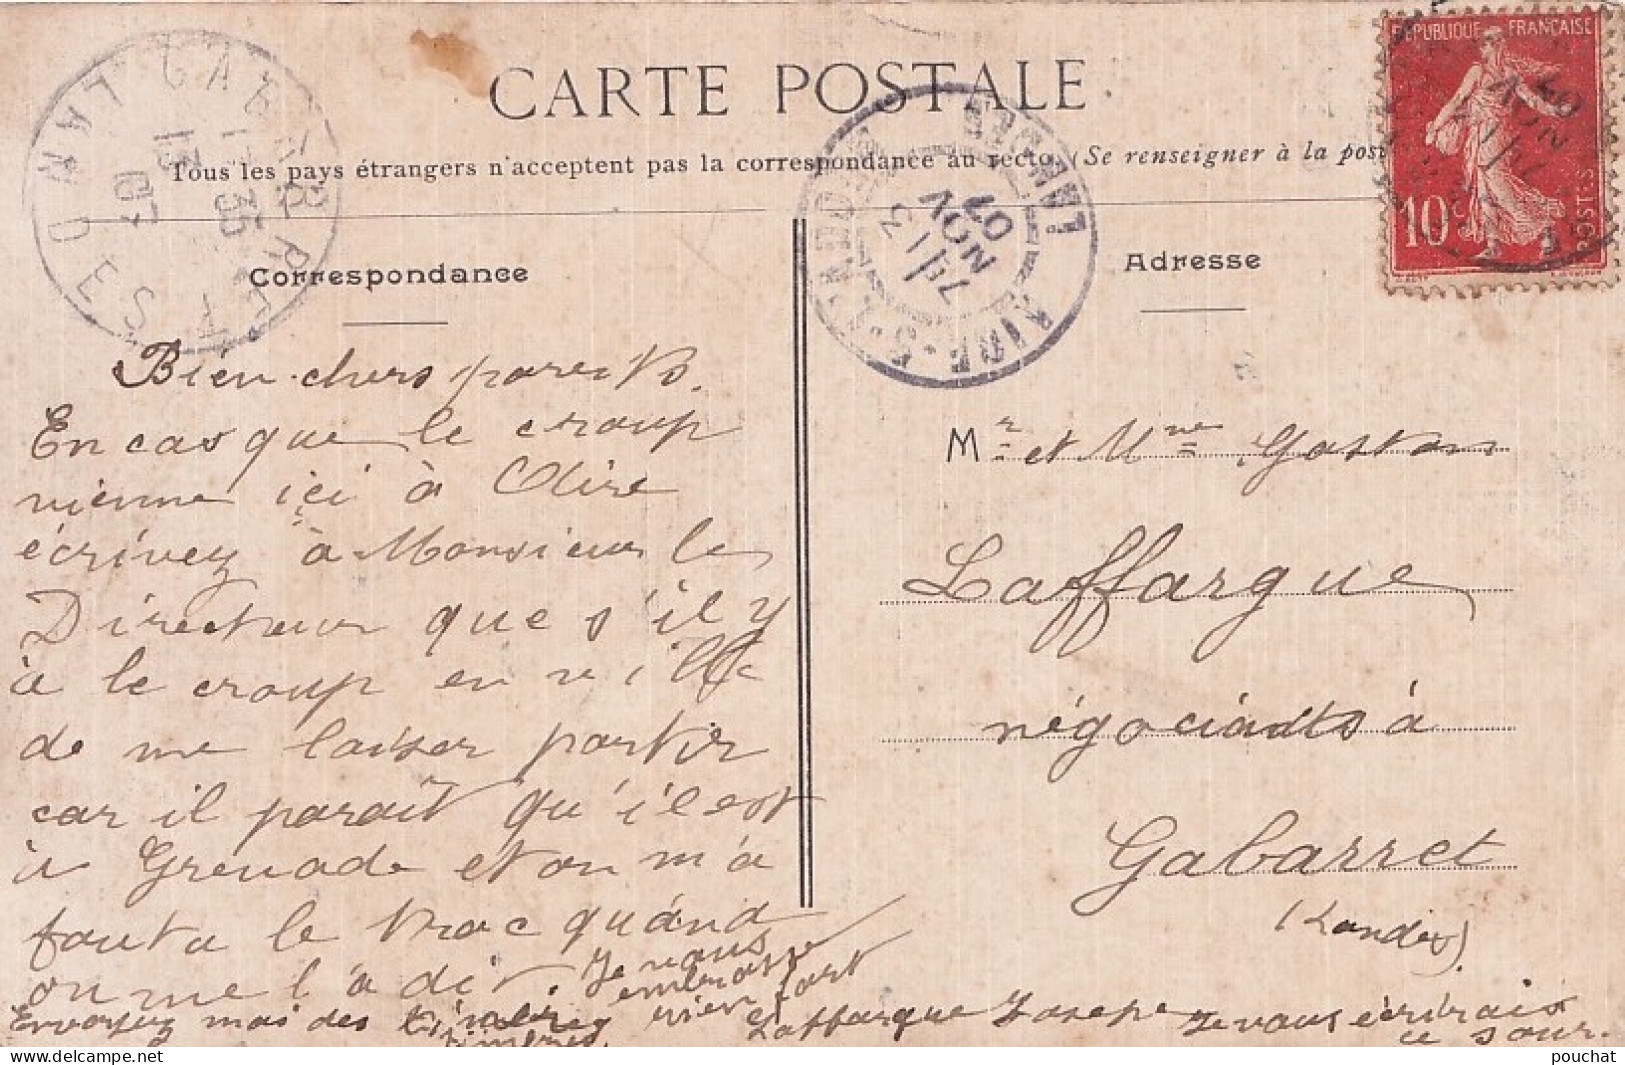 CARTE POSTALE
Tous les pays étrangers n'acceptent pas la correspondance au recto. (Se renseigner à la post
RÉPUBLIQUE FRANÇAISE
10c
POSTES
GABARRET
LANDES
35
13
07
AIRE-S-L'ADOUR
LANDES
13
NOV
07
Correspondance
Adresse
Bien chers parents.
En cas que le croup
vienne içi à Aire
écrivez à Monsieur le
Directeur que s'il y
à le croup en ville
de me laisser partir
car il parait qu'il est
à Grenade et on m'a
foutu le trac quánd
on me l'a dit
Je vous
embrasse
bien fort
Envoyez moi des timbres
timbres.
Laffargue Joseph
Je vous écrirais
ce soir.
Mr et Mme Gaston
Laffargue
négociants à
Gabarret
(Landes).
pouchat